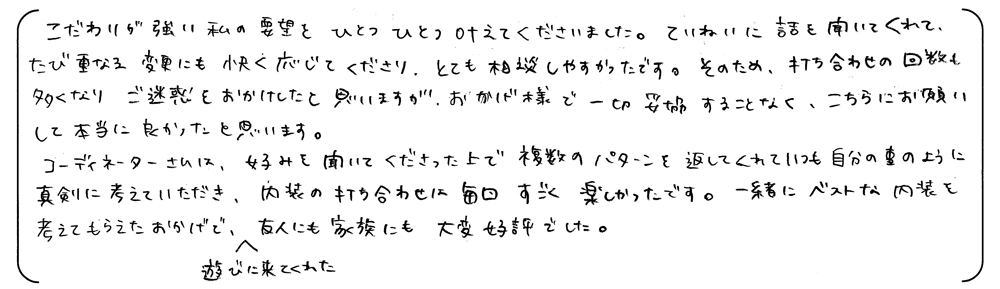 こだわりが強い私の要望をひとつひとつ叶えてくださいました。ていねいに話を聞いてくれて、
たび重なる変更にも快く応じてくださり、とても相談しやすかったです。そのため、打ち合わせの回数も
多くなりご迷惑をおかけしたと思いますが、おかげ様で一切妥協することなく、こちらにお願い
して本当に良かったと思います。
コーディネーターさんは、好みを聞いてくださった上で複数のパターンを返してくれていつも自分の事のように
真剣に考えていただき、内装の打ち合わせは毎回すごく楽しかったです。一緒にベストな内装を
考えてもらえたおかげで、友人にも家族にも大変好評でした。
遊びに来てくれた